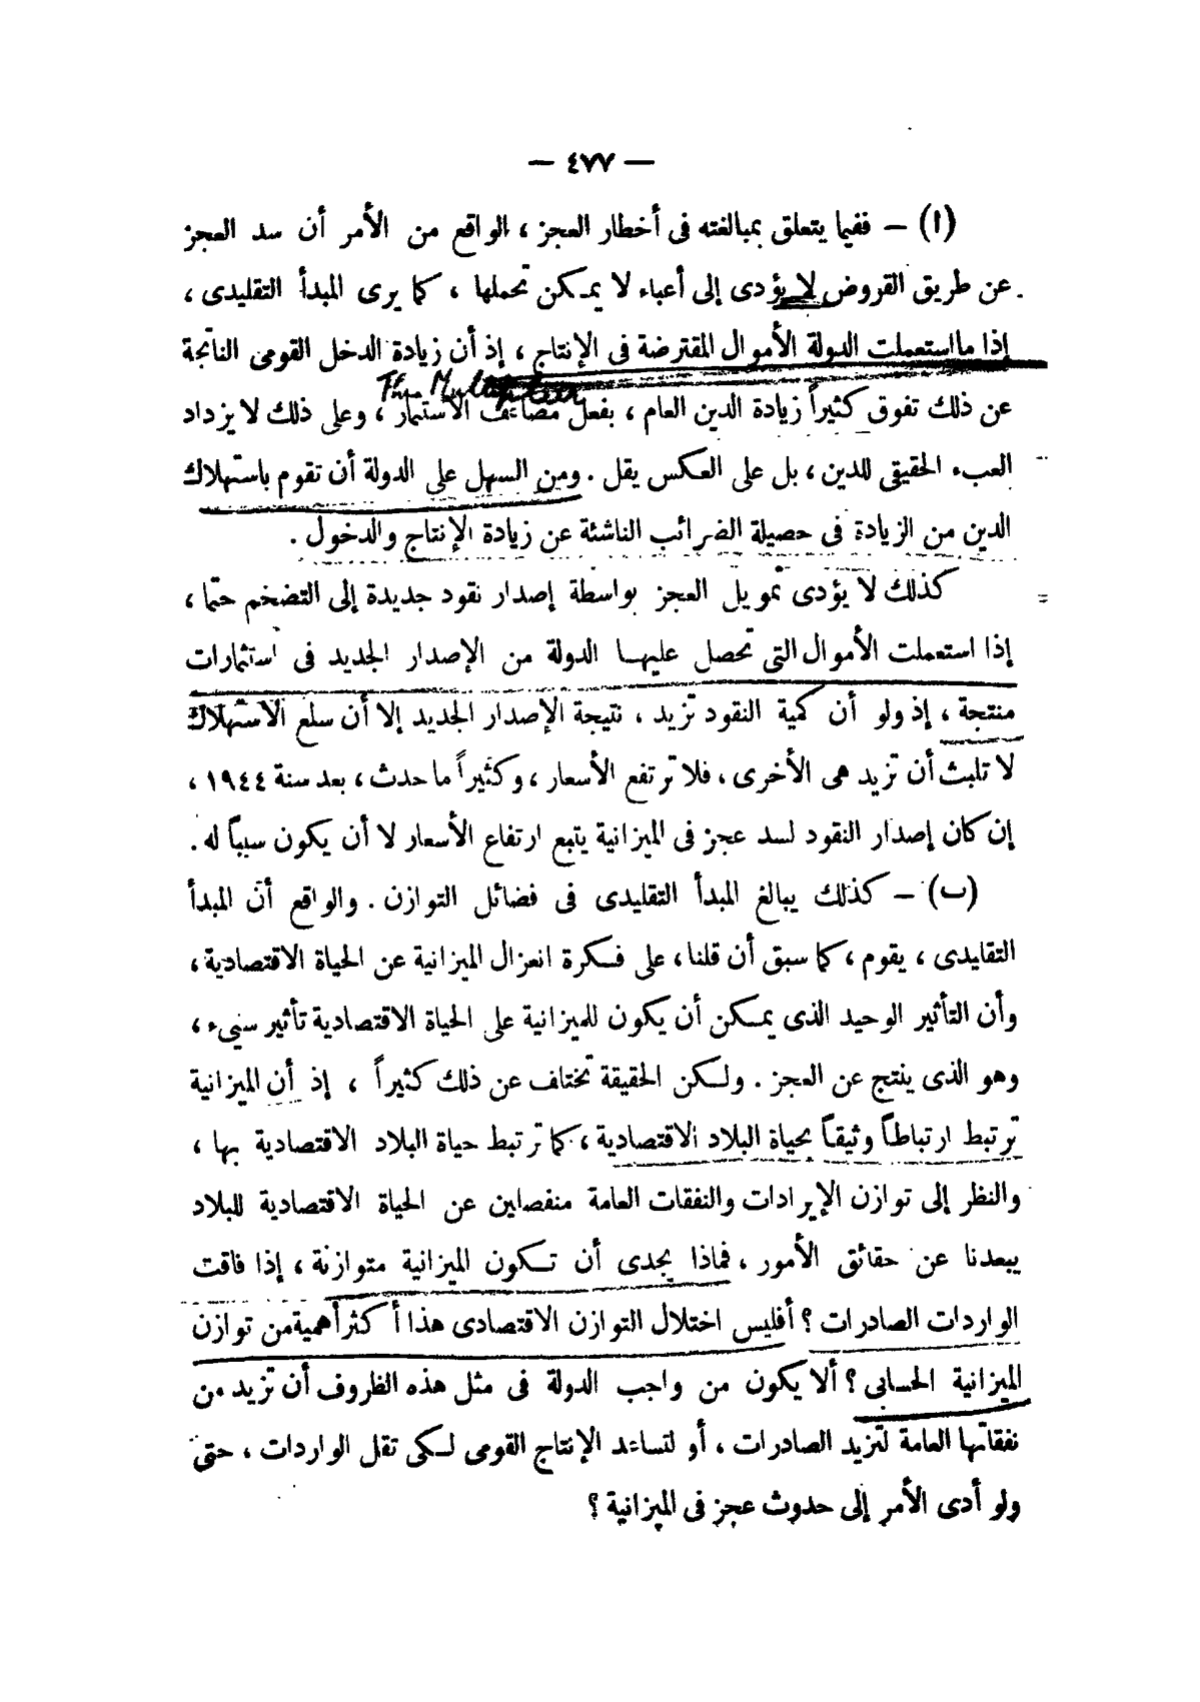 — ٤٧٧ —
(ا) — ففيما يتعلق بمبالغته فى أخطار العجز ، الواقع من الأمر أن سد العجز
عن طريق القروض لا يؤدى إلى أعباء لا يمكن تحملها ، كما يرى المبدأ التقليدى ،
إذا ما استعملت الدولة الأموال المقترضة فى الإنتاج ، إذ أن زيادة الدخل القومى الناتجة
The Multiplier
عن ذلك تفوق كثيراً زيادة الدين العام ، بفعل مضاعف الاستثمار ، وعلى ذلك لا يزداد
العبء الحقيقى للدين ، بل على العكس يقل . ومن السهل على الدولة أن تقوم باستهلاك
الدين من الزيادة فى حصيلة الضرائب الناشئة عن زيادة الإنتاج والدخول .
كذلك لا يؤدى تمويل العجز بواسطة إصدار نقود جديدة إلى التضخم حتما ،
إذا استعملت الأموال التى تحصل عليها الدولة من الإصدار الجديد فى استثمارات
منتجة ، إذ ولو أن كمية النقود تزيد ، نتيجة الإصدار الجديد إلا أن سلع الاستهلاك
لا تلبث أن تزيد هى الأخرى ، فلا ترتفع الأسعار ، وكثيراً ما حدث ، بعد سنة ١٩٤٤ ،
إن كان إصدار النقود لسد عجز فى الميزانية يتبع ارتفاع الأسعار لا أن يكون سبباً له .
(ب) — كذلك يبالغ المبدأ التقليدى فى فضائل التوازن . والواقع أن المبدأ
التقليدى ، يقوم ، كما سبق أن قلنا ، على فكرة انعزال الميزانية عن الحياة الاقتصادية ،
وأن التأثير الوحيد الذى يمكن أن يكون للميزانية على الحياة الاقتصادية تأثير سيىء ،
وهو الذى ينتج عن العجز . ولكن الحقيقة تختلف عن ذلك كثيراً ، إذ أن الميزانية
ترتبط ارتباطاً وثيقاً بحياة البلاد الاقتصادية ، كما ترتبط حياة البلاد الاقتصادية بها ،
والنظر إلى توازن الإيرادات والنفقات العامة منفصلين عن الحياة الاقتصادية للبلاد
يبعدنا عن حقائق الأمور ، فماذا يجدى أن تكون الميزانية متوازنة ، إذا فاقت
الواردات الصادرات ؟ أفليس اختلال التوازن الاقتصادى هذا أكثر أهمية من توازن
الميزانية الحسابى ؟ ألا يكون من واجب الدولة فى مثل هذه الظروف أن تزيد من
نفقاتها العامة لتزيد الصادرات ، أو لتساعد الإنتاج القومى لكى تقل الواردات ، حتى
ولو أدى الأمر إلى حدوث عجز فى الميزانية ؟